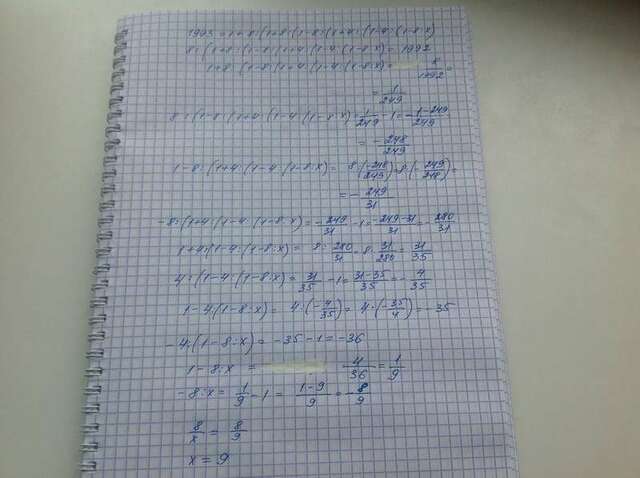 1993 = 1 + 8:(1+8:(1-8:(1+4:(1-4:(1-8:x)
8:(1+8:(1-8:(1+4:(1-4:(1-8:x) = 1992
1+8:(1-8:(1+4:(1-4:(1-8:x) = 8/1992 =
= 1/249
8:(1-8:(1+4:(1-4:(1-8:x) = 1/249 - 1 = 1-249/249
= -248/249
1-8:(1+4:(1-4:(1-8:x) = 8:(-248/249) = 8·(-249/248) =
= -249/31
-8:(1+4:(1-4:(1-8:x) = -249/31 - 1 = -249-31/31 = -280/31
1+4:(1-4:(1-8:x) = 8:280/31 = 8·31/280 = 31/35
4:(1-4:(1-8:x) = 31/35 - 1 = 31-35/35 = -4/35
1-4:(1-8:x) = 4:(-4/35) = 4·(-35/4) = -35
-4:(1-8:x) = -35-1 = -36
1-8:x = 4/36 = 1/9
-8:x = 1/9 - 1 = 1-9/9 = 8/9
8/x = 8/9
x = 9